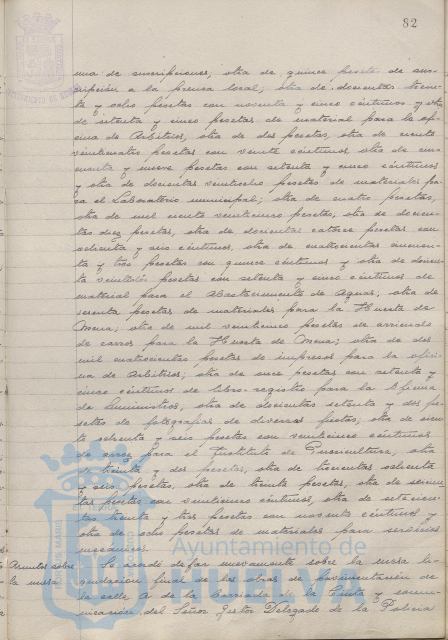 82
una de suscripciones; otra de quince pesetas de sus-
cripción a la prensa local; otra de doscientas trein-
ta y ocho pesetas con noventa y cinco céntimos y otra
de setenta y cinco pesetas de material para la ofi-
cina de Arbitrios, otra de dos pesetas, otra de ciento
veinticuatro pesetas con veinte céntimos otra de cin-
cuenta y nueve pesetas con setenta y cinco céntimos
y otra de doscientas veintiocho pesetas de materiales pa-
ra el Laboratorio municipal; otra de cuatro pesetas,
otra de mil ciento veinticinco pesetas, otra de doscien-
tas diez pesetas, otra de doscientas catorce pesetas con
ochenta y seis céntimos, otra de cuatrocientas cincuen-
ta y tres pesetas con quince céntimos y otra de doscien-
ta veintidós pesetas con setenta y cinco céntimos de
material para el Abastecimiento de Aguas, otra de
sesenta pesetas de materiales para la Huerta de
Mena; otra de mil veinticinco pesetas de arriendo
de carros para la Huerta de Mena; otra de dos
mil cuatrocientas pesetas de impresos para la ofici-
na de Arbitrios; otra de once pesetas con setenta y
cinco céntimos de libro-registro para la oficina
de Suministros, otra de doscientas setenta y dos pe-
setas de fotografías de diversas fiestas; otra de cien-
to ochenta y seis pesetas con veinticinco céntimos
de arroz para el Instituto de Puericultura, otra
de treinta y dos pesetas, otra de trescientas ochenta
y seis pesetas, otra de treinta pesetas, otra de
tas pesetas con veinticinco céntimos, otra de setecien-
tas treinta y tres pesetas con noventa céntimos y
otra de ocho pesetas de materiales para servicios
mecánicos.
Asuntos sobre Se acordó dejar nuevamente sobre la mesa li-
la mesa quidación final de las obras de pavimentación de
la calle A de la Barriada de la Cinta y comu-
nicación del Señor Gestor Delegado de la Policía
Ayuntamiento de
HUELVA